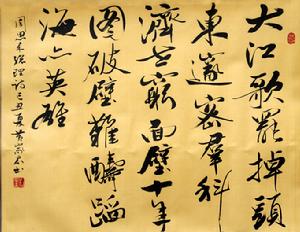 大江歌罷掉頭
東邃密羣科
濟世窮面壁十年
圖破壁難醻蹈
海亦英雄
周恩来總理詩己丑夏黄書